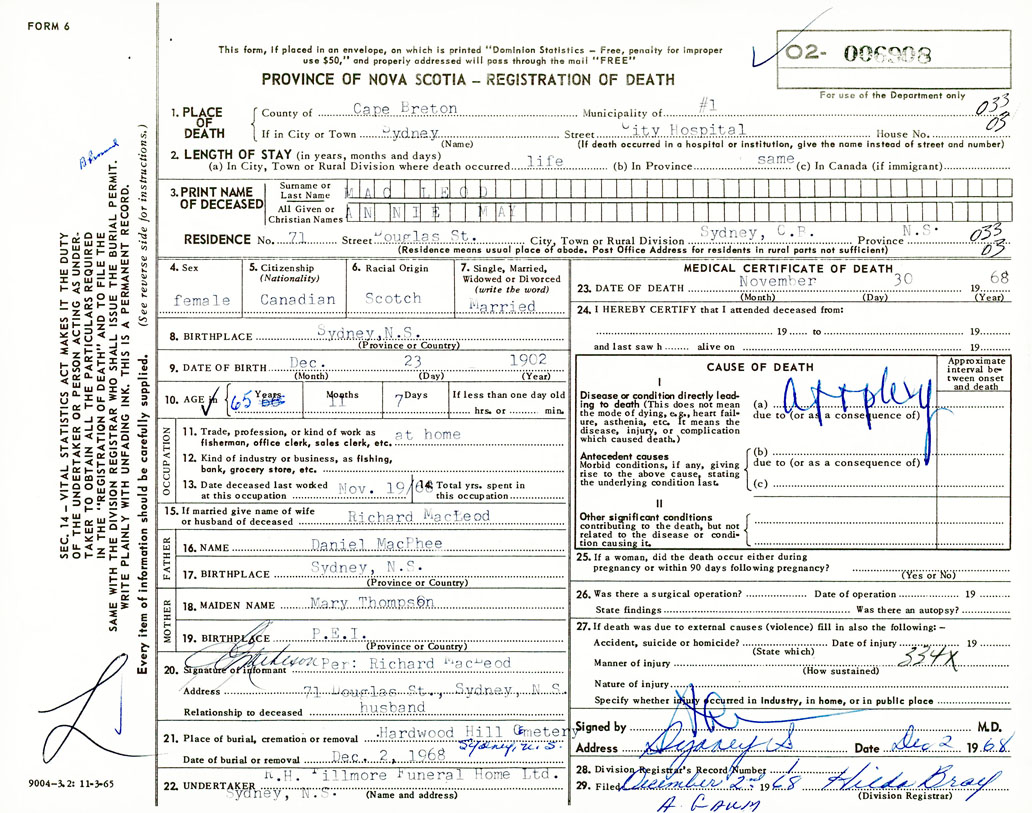 FORM 6
This form, if placed in an envelope, on which is printed "Dominion Statistics – Free, penalty for improper
use $50," and properly addressed will pass through the mail "FREE"
PROVINCE OF NOVA SCOTIA – REGISTRATION OF DEATH
02- 006908
For use of the Department only
1. PLACE OF DEATH
County of Cape Breton Municipality of #1 033
If in City or Town Sydney Street City Hospital House No. 03
(Name) (If death occurred in a hospital or institution, give the name instead of street and number)
2. LENGTH OF STAY (in years, months and days)
(a) In City, Town or Rural Division where death occurred life (b) In Province same (c) In Canada (if immigrant)
3. PRINT NAME OF DECEASED
Surname or Last Name MAC LEOD
All Given or Christian Names ANNIE MAY
RESIDENCE No. 71 Street Douglas St. City, Town or Rural Division Sydney, C.B. Province N.S. 033
(Residence means usual place of abode. Post Office Address for residents in rural parts not sufficient) 03
4. Sex
female
5. Citizenship (Nationality)
Canadian
6. Racial Origin
Scotch
7. Single, Married, Widowed or Divorced (write the word)
Married
8. BIRTHPLACE Sydney, N.S.
(Province or Country)
9. DATE OF BIRTH Dec. 23 1902
(Month) (Day) (Year)
10. AGE in 65 Years 11 Months 7 Days If less than one day old
hrs. or min.
OCCUPATION
11. Trade, profession, or kind of work as
fisherman, office clerk, sales clerk, etc. at home
12. Kind of industry or business, as fishing,
bank, grocery store, etc.
13. Date deceased last worked
at this occupation Nov. 19/68
14. Total yrs. spent in
this occupation
15. If married give name of wife
or husband of deceased Richard MacLeod
FATHER
16. NAME Daniel MacPhee
17. BIRTHPLACE Sydney, N.S.
(Province or Country)
MOTHER
18. MAIDEN NAME Mary Thompson
19. BIRTHPLACE P.E.I.
(Province or Country)
20. Signature of informant Per: Richard MacLeod
Address 71 Douglas St., Sydney, N.S.
Relationship to deceased husband
21. Place of burial, cremation or removal Hardwood Hill Cemetery
Sydney, N.S.
Date of burial or removal Dec. 2, 1968
22. UNDERTAKER R.H. Fillmore Funeral Home Ltd.
Sydney, N.S. (Name and address)
MEDICAL CERTIFICATE OF DEATH
23. DATE OF DEATH November 30 1968
(Month) (Day) (Year)
24. I HEREBY CERTIFY that I attended deceased from:
19 to 19
and last saw h alive on 19
CAUSE OF DEATH
Approximate interval between onset and death
I
Disease or condition directly leading to death (This does not mean the mode of dying, e.g., heart failure, asthenia, etc. It means the disease, injury, or complication which caused death.)
(a)
due to (or as a consequence of)
Antecedent causes
Morbid conditions, if any, giving rise to the above cause, stating the underlying condition last.
(b)
due to (or as a consequence of)
(c)
II
Other significant conditions
contributing to the death, but not related to the disease or condition causing it.
25. If a woman, did the death occur either during
pregnancy or within 90 days following pregnancy?
(Yes or No)
26. Was there a surgical operation? Date of operation 19
State findings Was there an autopsy?
27. If death was due to external causes (violence) fill in also the following: –
Accident, suicide or homicide? Date of injury 19
(State which)
Manner of injury 334X
(How sustained)
Nature of injury
Specify whether injury occurred in Industry, in home, or in public place
Signed by M.D.
Address Sydney NS Date Dec 2 1968
28. Division Registrar's Record Number
29. Filed December 2nd 1968 Hilda Bray
(Division Registrar)
SEC. 14 – VITAL STATISTICS ACT MAKES IT THE DUTY
OF THE UNDERTAKER OR PERSON ACTING AS UNDER-
TAKER TO OBTAIN ALL THE PARTICULARS REQUIRED
IN THE "REGISTRATION OF DEATH" AND TO FILE THE
SAME WITH THE DIVISION REGISTRAR WHO SHALL ISSUE THE BURIAL PERMIT.
WRITE PLAINLY WITH UNFADING INK. THIS IS A PERMANENT RECORD.
Every item of information should be carefully supplied. (See reverse side for instructions.)
9004-3.2: 11-3-65